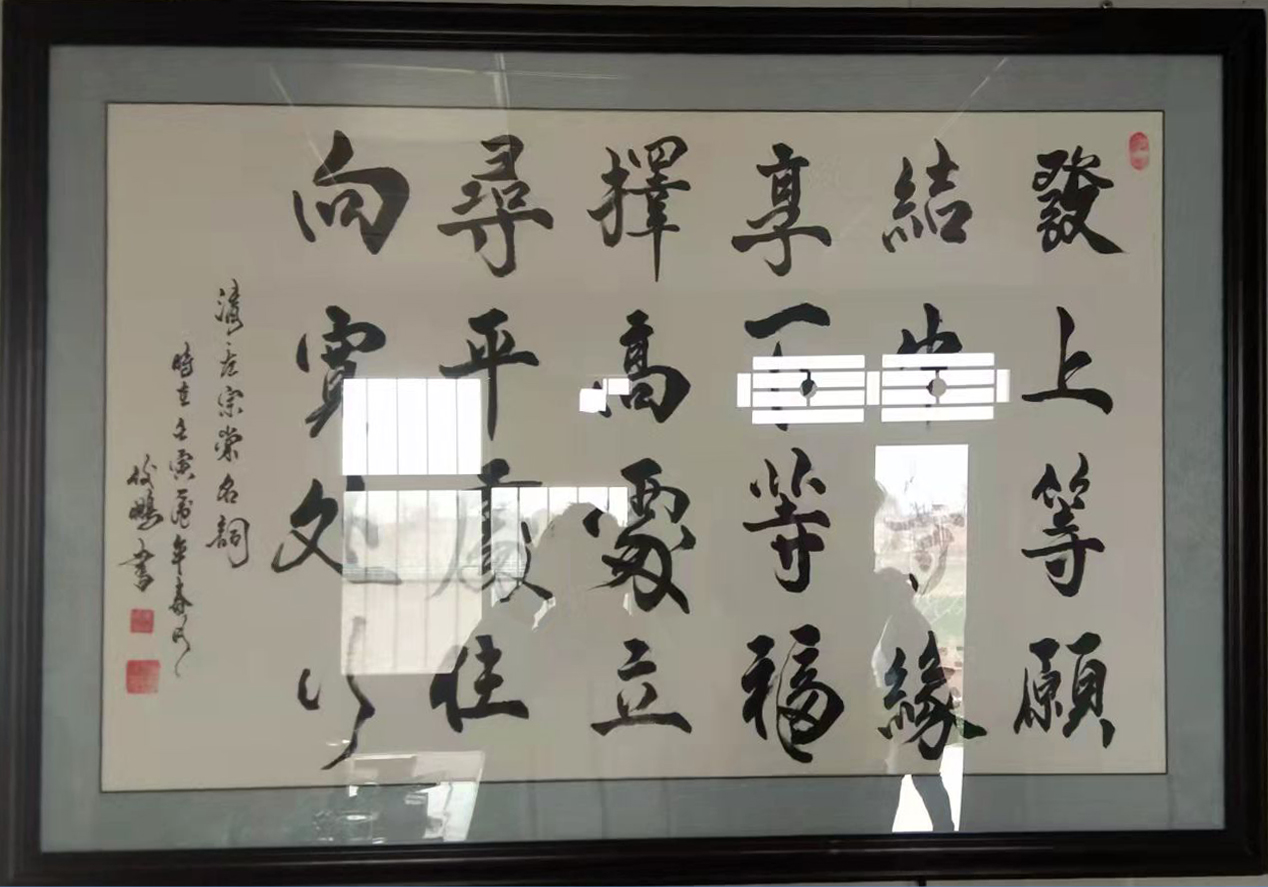 發上等願
結中等緣
享下等福
擇高處立
尋平處住
向寬处行
清左宗棠名詞
時在壬寅虎年春月
俊鵬書